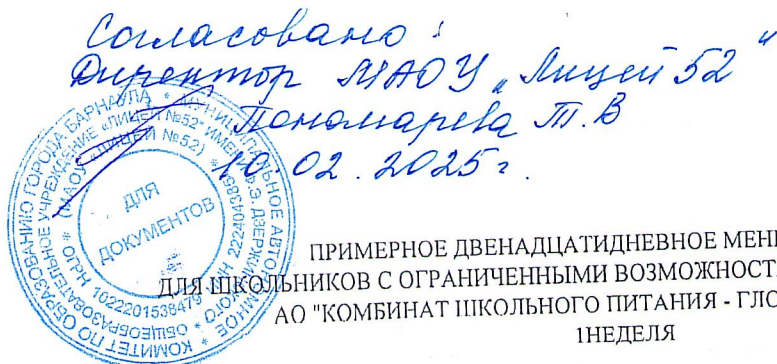 Согласовано:
Директор МАОУ „Лицей 52"
Пономарева Т.В
10.02.2025г.
КОМИТЕТ ПО ОБРАЗОВАНИЮ ГОРОДА БАРНАУЛА * МУНИЦИПАЛЬНОЕ АВТОНОМНОЕ
ОБЩЕОБРАЗОВАТЕЛЬНОЕ УЧРЕЖДЕНИЕ «ЛИЦЕЙ №52» ИМЕНИ
(МАОУ «ЛИЦЕЙ №52»)
ОГРН 1022201538479
ДЛЯ
ДОКУМЕНТОВ
ПРИМЕРНОЕ ДВЕНАДЦАТИДНЕВНОЕ МЕН
ДЛЯ ШКОЛЬНИКОВ С ОГРАНИЧЕННЫМИ ВОЗМОЖНОСТ
АО "КОМБИНАТ ШКОЛЬНОГО ПИТАНИЯ - ГЛО
1НЕДЕЛЯ